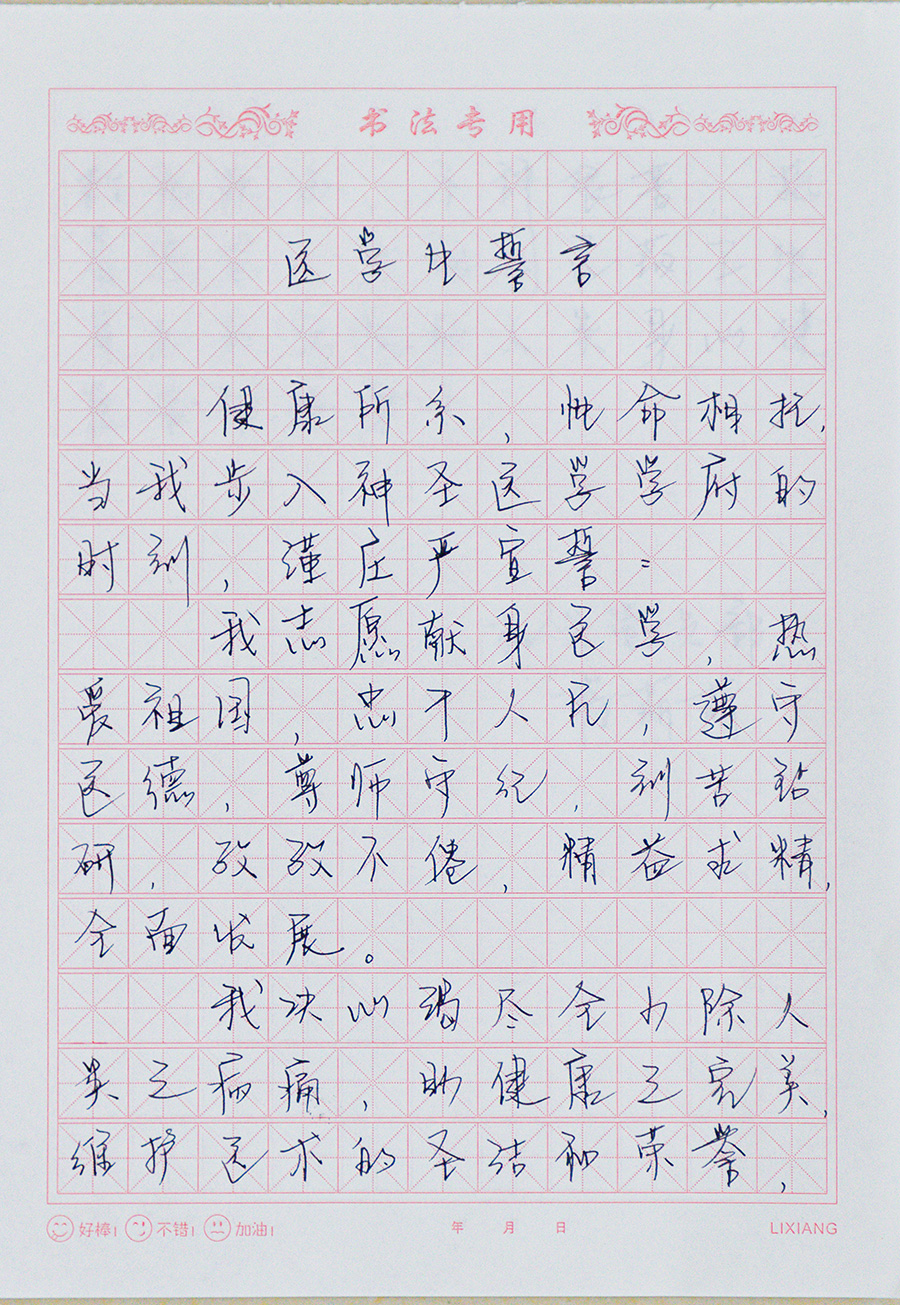 书法专用
医学生誓言
健康所系，性命相托，
当我步入神圣医学学府的
时刻，谨庄严宣誓：
我志愿献身医学，热
爱祖国，忠于人民，遵守
医德，尊师守纪，刻苦钻
研，孜孜不倦，精益求精，
全面发展。
我决心竭尽全力除人
类之病痛，助健康之完美，
维护医术的圣洁和荣誉，
好棒! 不错! 加油! 年 月 日 LIXIANG